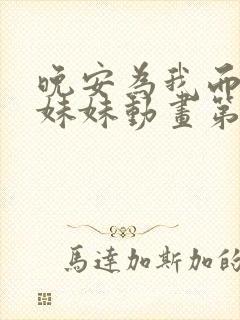 晚安為我而
妹妹動畫第
馬達加斯加的